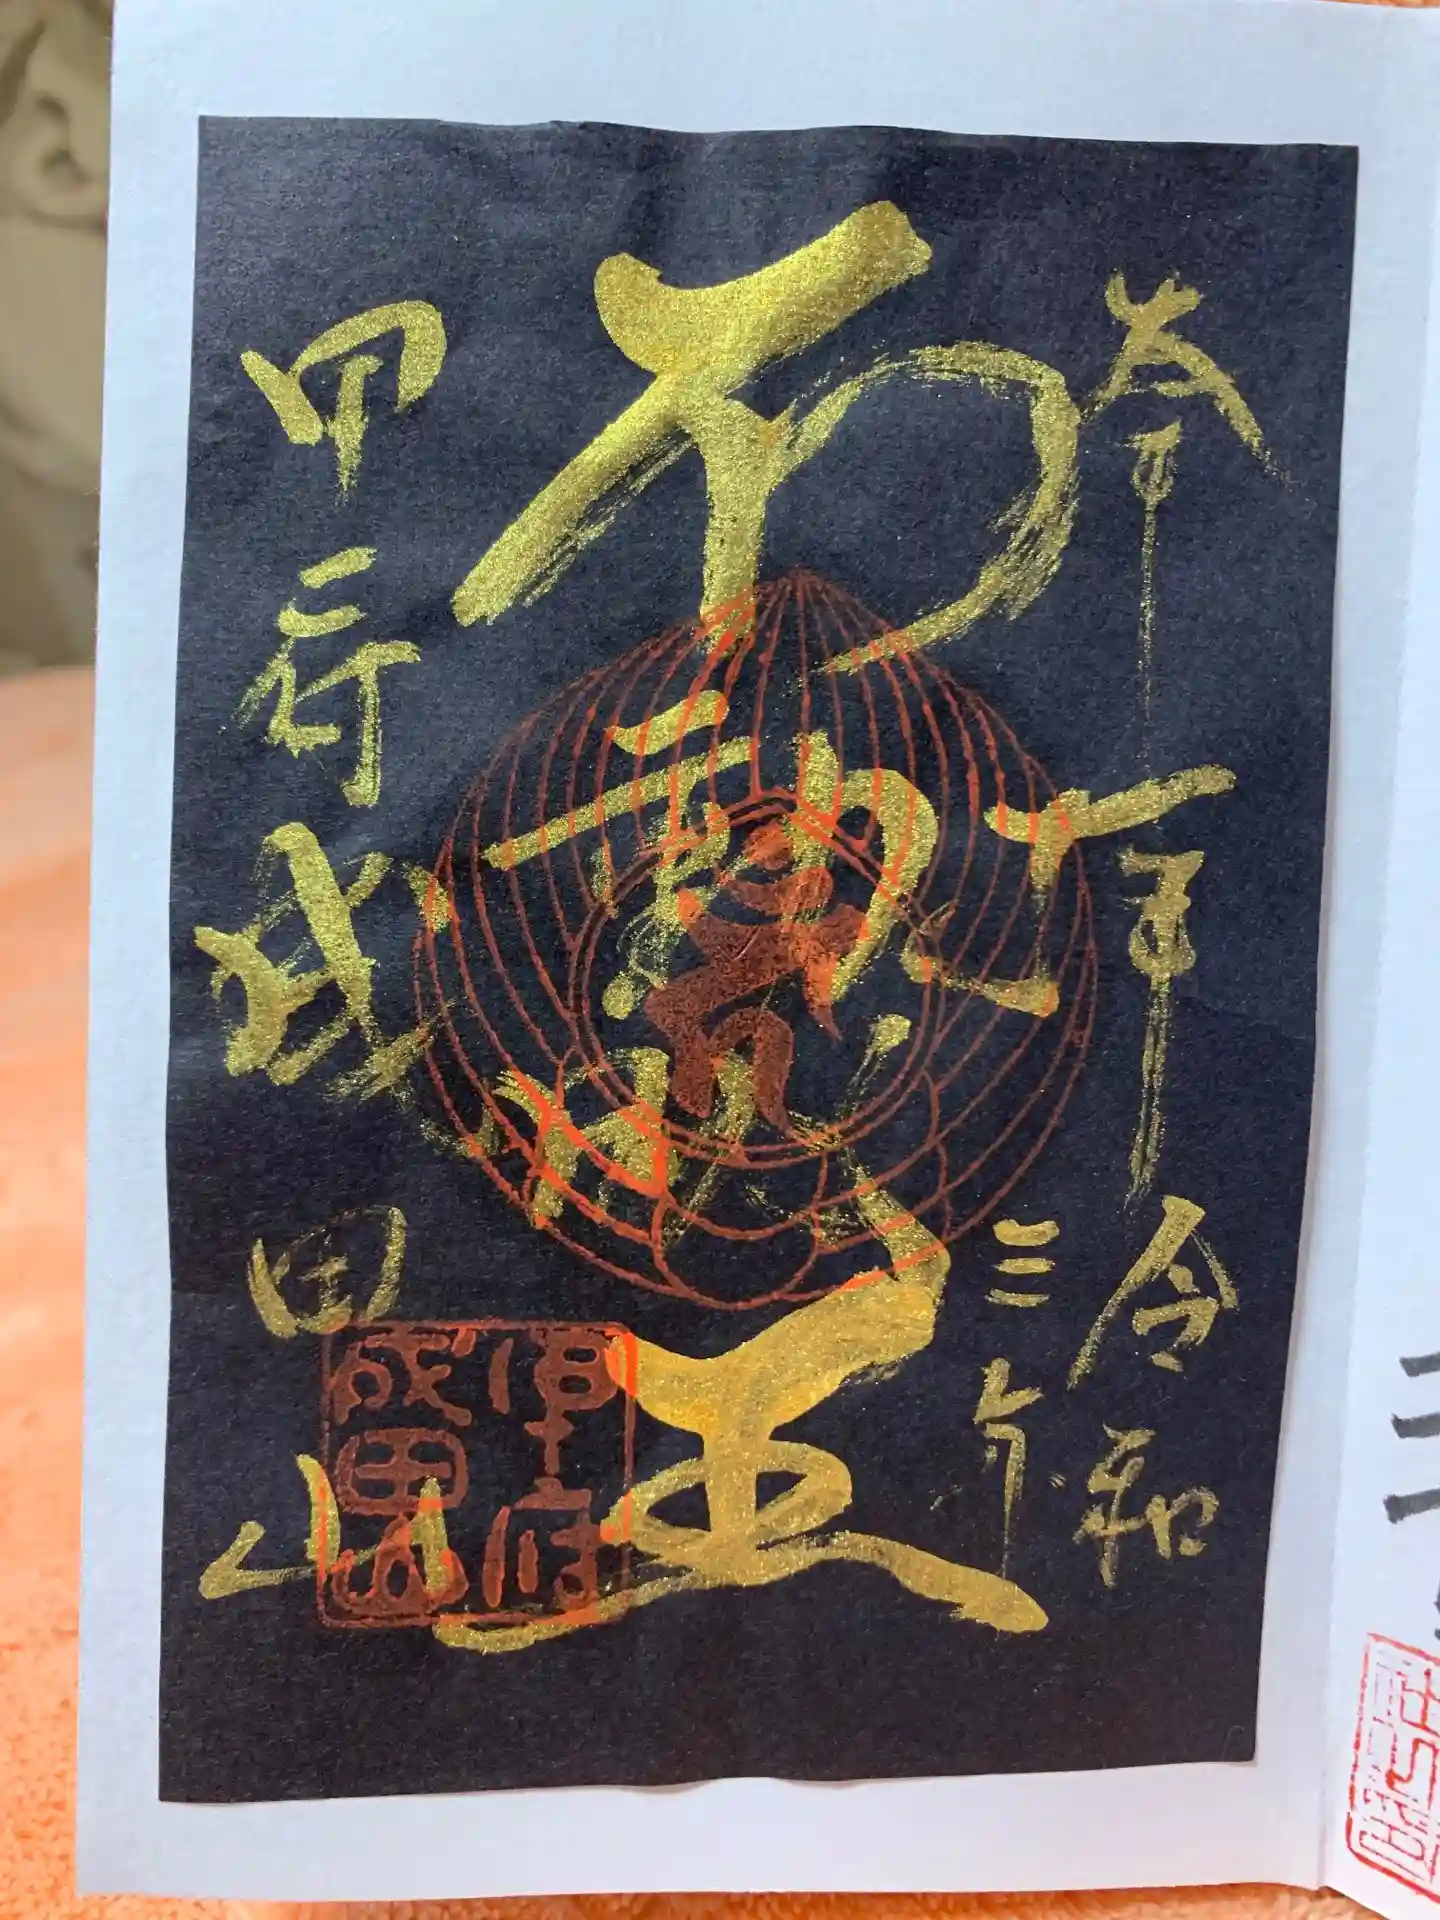 奉拝 令和
三年
不動明王
甲府成田山
成田山